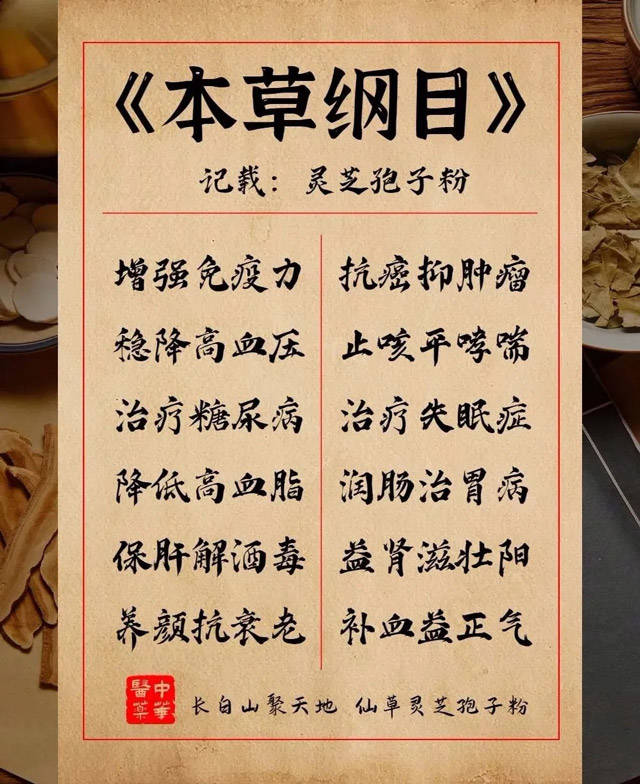 《本草纲目》
记载：灵芝孢子粉
增强免疫力
稳降高血压
治疗糖尿病
降低高血脂
保肝解酒毒
养颜抗衰老
抗癌抑肿瘤
止咳平哮喘
治疗失眠症
润肠治胃病
益肾滋壮阳
补血益正气
中华
醫药
长白山聚天地 仙草灵芝孢子粉